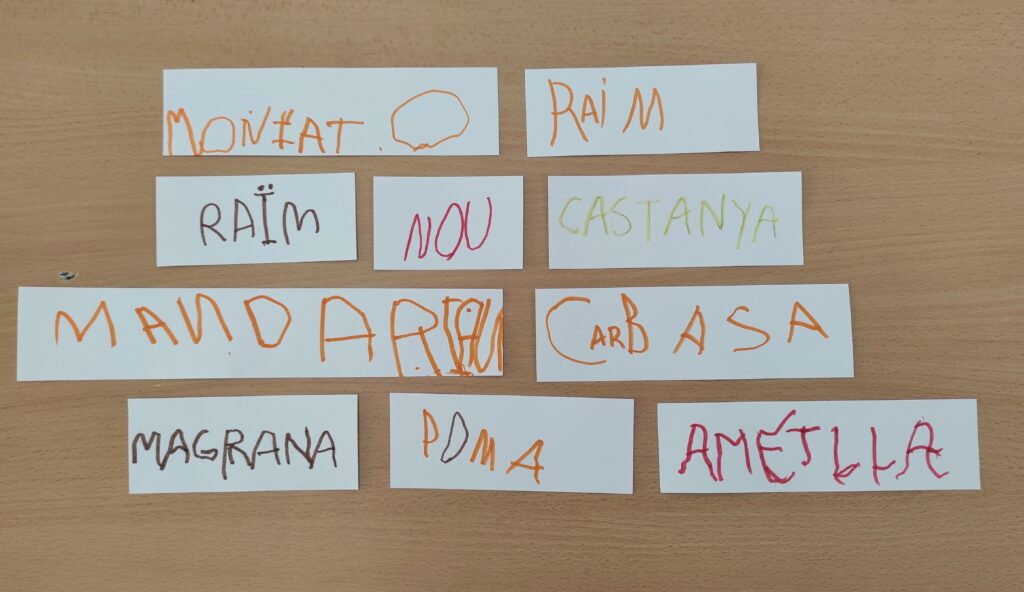 MONIAT.O
RAIM
RAÏM
NOU
CASTANYA
CARBASA
MAGRANA
POMA
AMÉTLLA